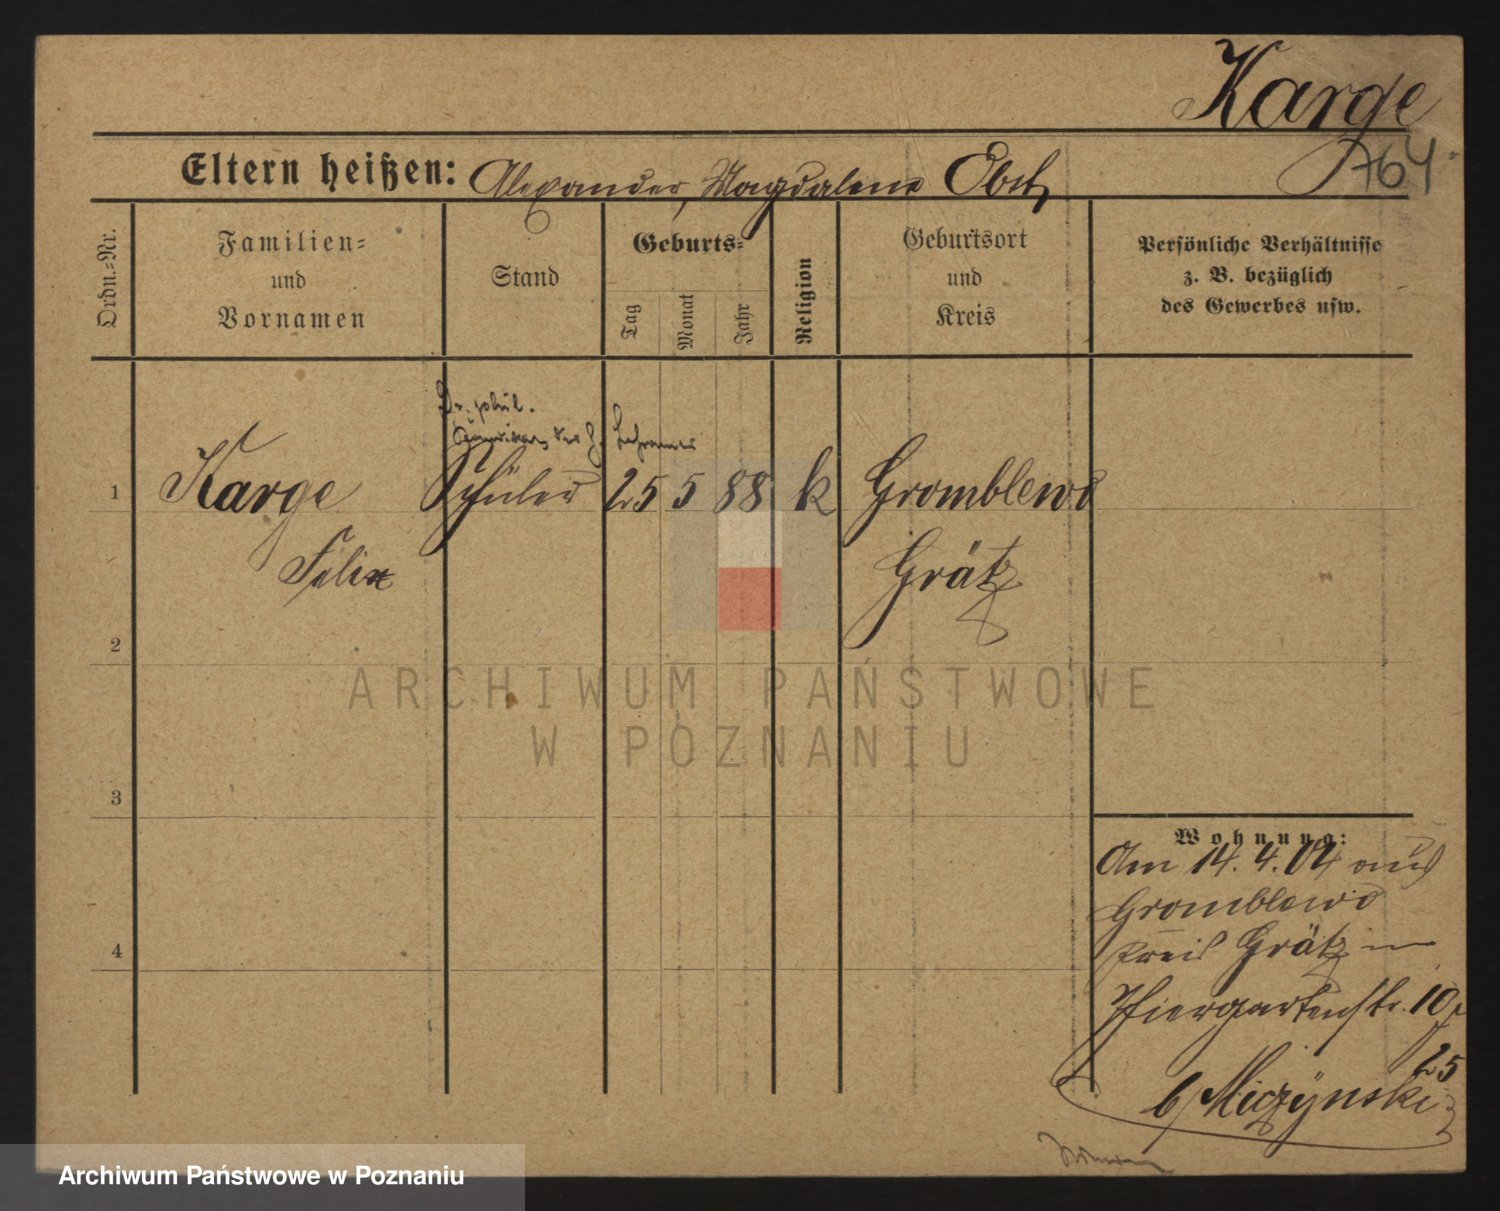 Karge
764
Eltern heißen: Alexander, Magdalene Obst
Ordn.-Nr.
Familien-
und
Vornamen
Stand
Geburts-
Tag
Monat
Jahr
Religion
Geburtsort
und
Kreis
Persönliche Verhältnisse
z. B. bezüglich
des Gewerbes usw.
Dr. phil.
des h. Lehramts
1
Karge
Schüler
25 5 88
k
Gromblewo
Felix
Grätz
2
ARCHIWUM PAŃSTWOWE
W POZNANIU
3
Wohnung:
Am 14. 4. 04 aus
Gromblewo
4
Kreis Grätz in
Thiergartenstr. 10
25
b/ Miczynski
Archiwum Państwowe w Poznaniu